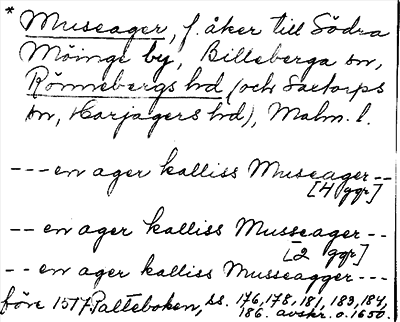 * Museager, f. åker till Södra
Möinge by, Billeberga sn,
Rönnebergs hd (och Saxtorps
sn, Harjagers hd), Malm. l.
--- en ager kalliss Museager --
[4 ggr]
-- en ager kalliss Musseager --
[2 ggr]
-- en ager kalliss Musseagger ---
före 1517. Palteboken, ss. 176, 178, 181, 183, 184,
186. avskr. o. 1650.